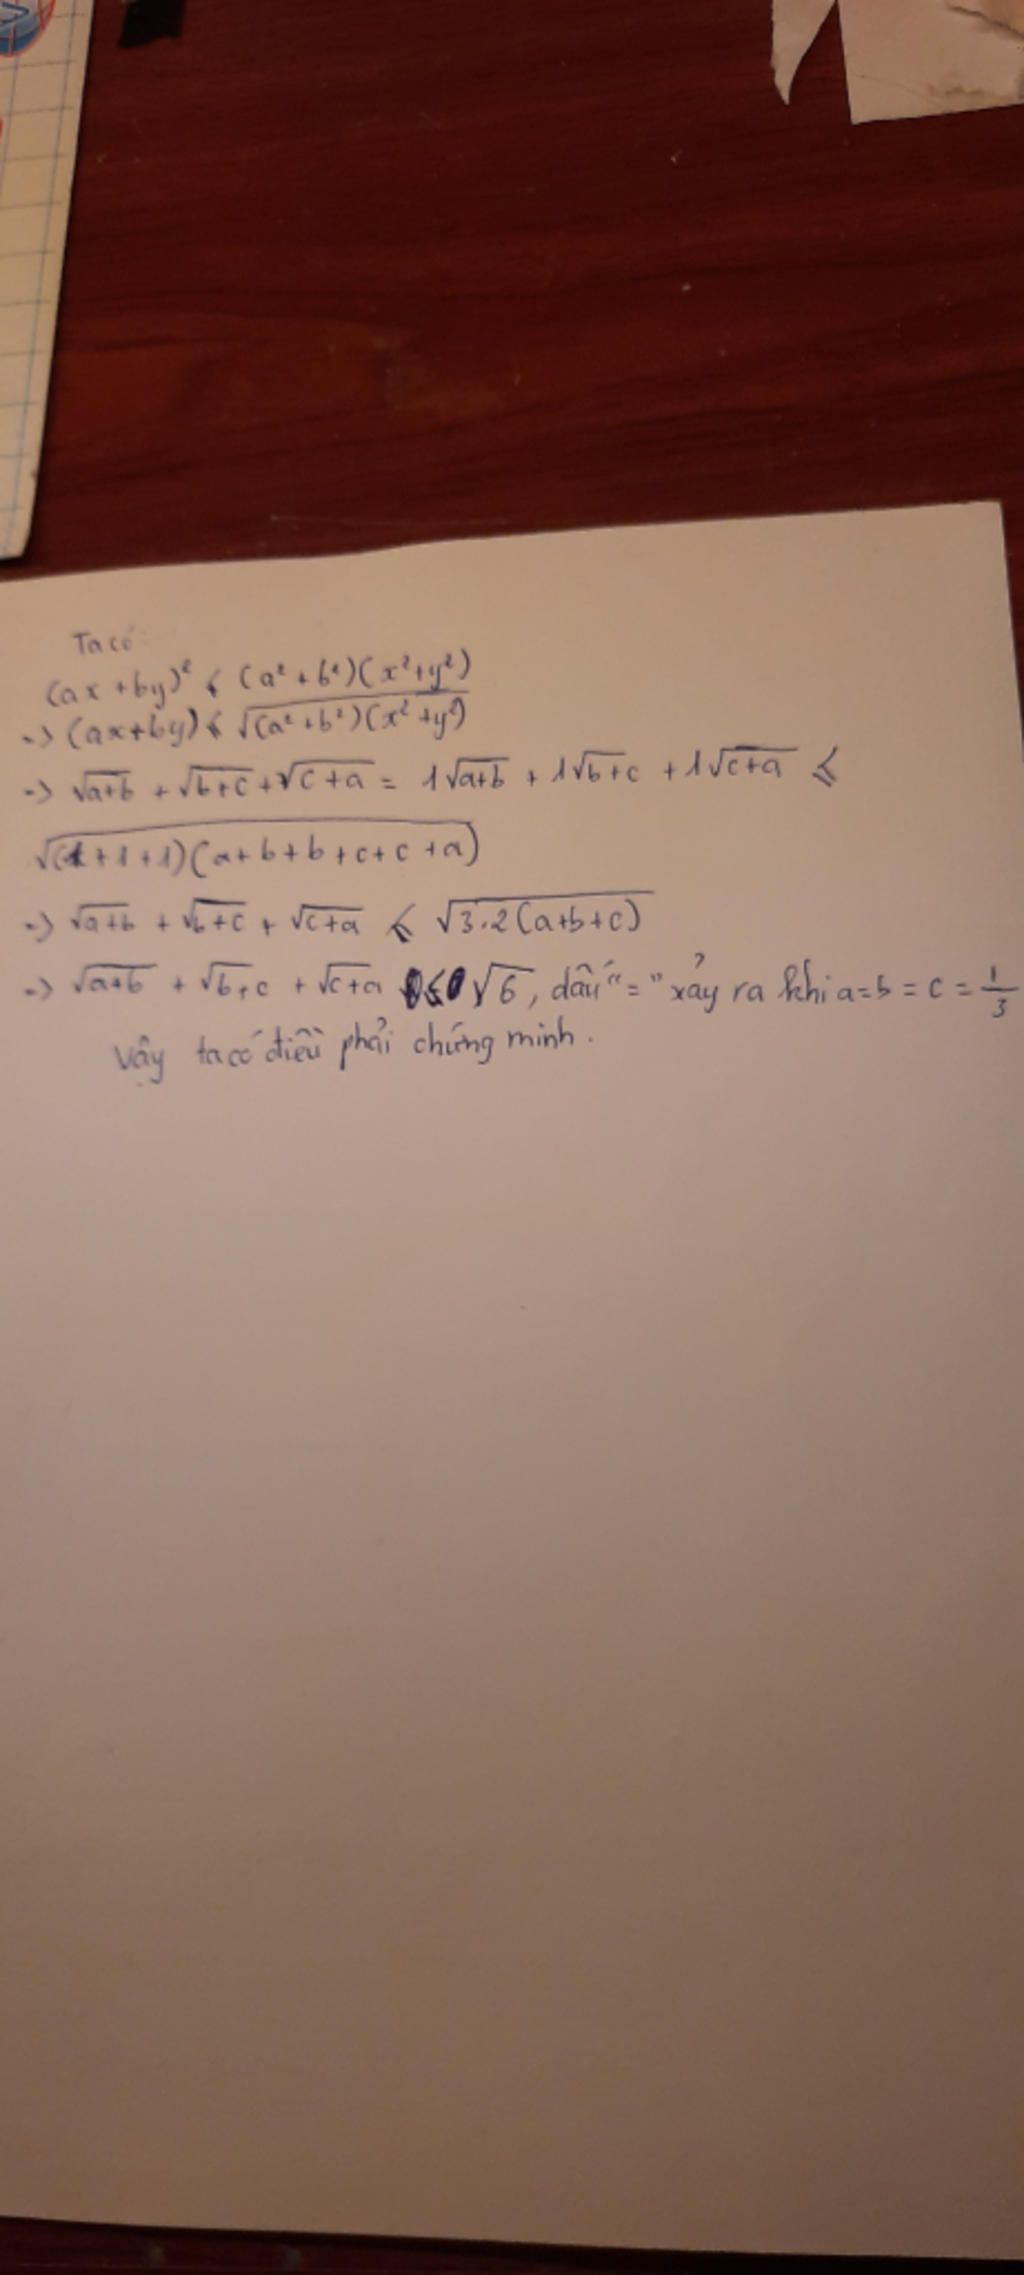 Ta có:
(ax + by)² ≤ (a² + b²)(x² + y²)
-> (ax+by) ≤ √((a² + b²)(x² + y²))
-> √(a+b) + √(b+c) + √(c+a) = 1√(a+b) + 1√(b+c) + 1√(c+a) ≤
√((1+1+1)(a+b+b+c+c+a))
-> √(a+b) + √(b+c) + √(c+a) ≤ √(3.2(a+b+c))
-> √(a+b) + √(b+c) + √(c+a) ≤ √6, dấu "=" xảy ra khi a=b=c=1/3
Vậy ta có điều phải chứng minh.